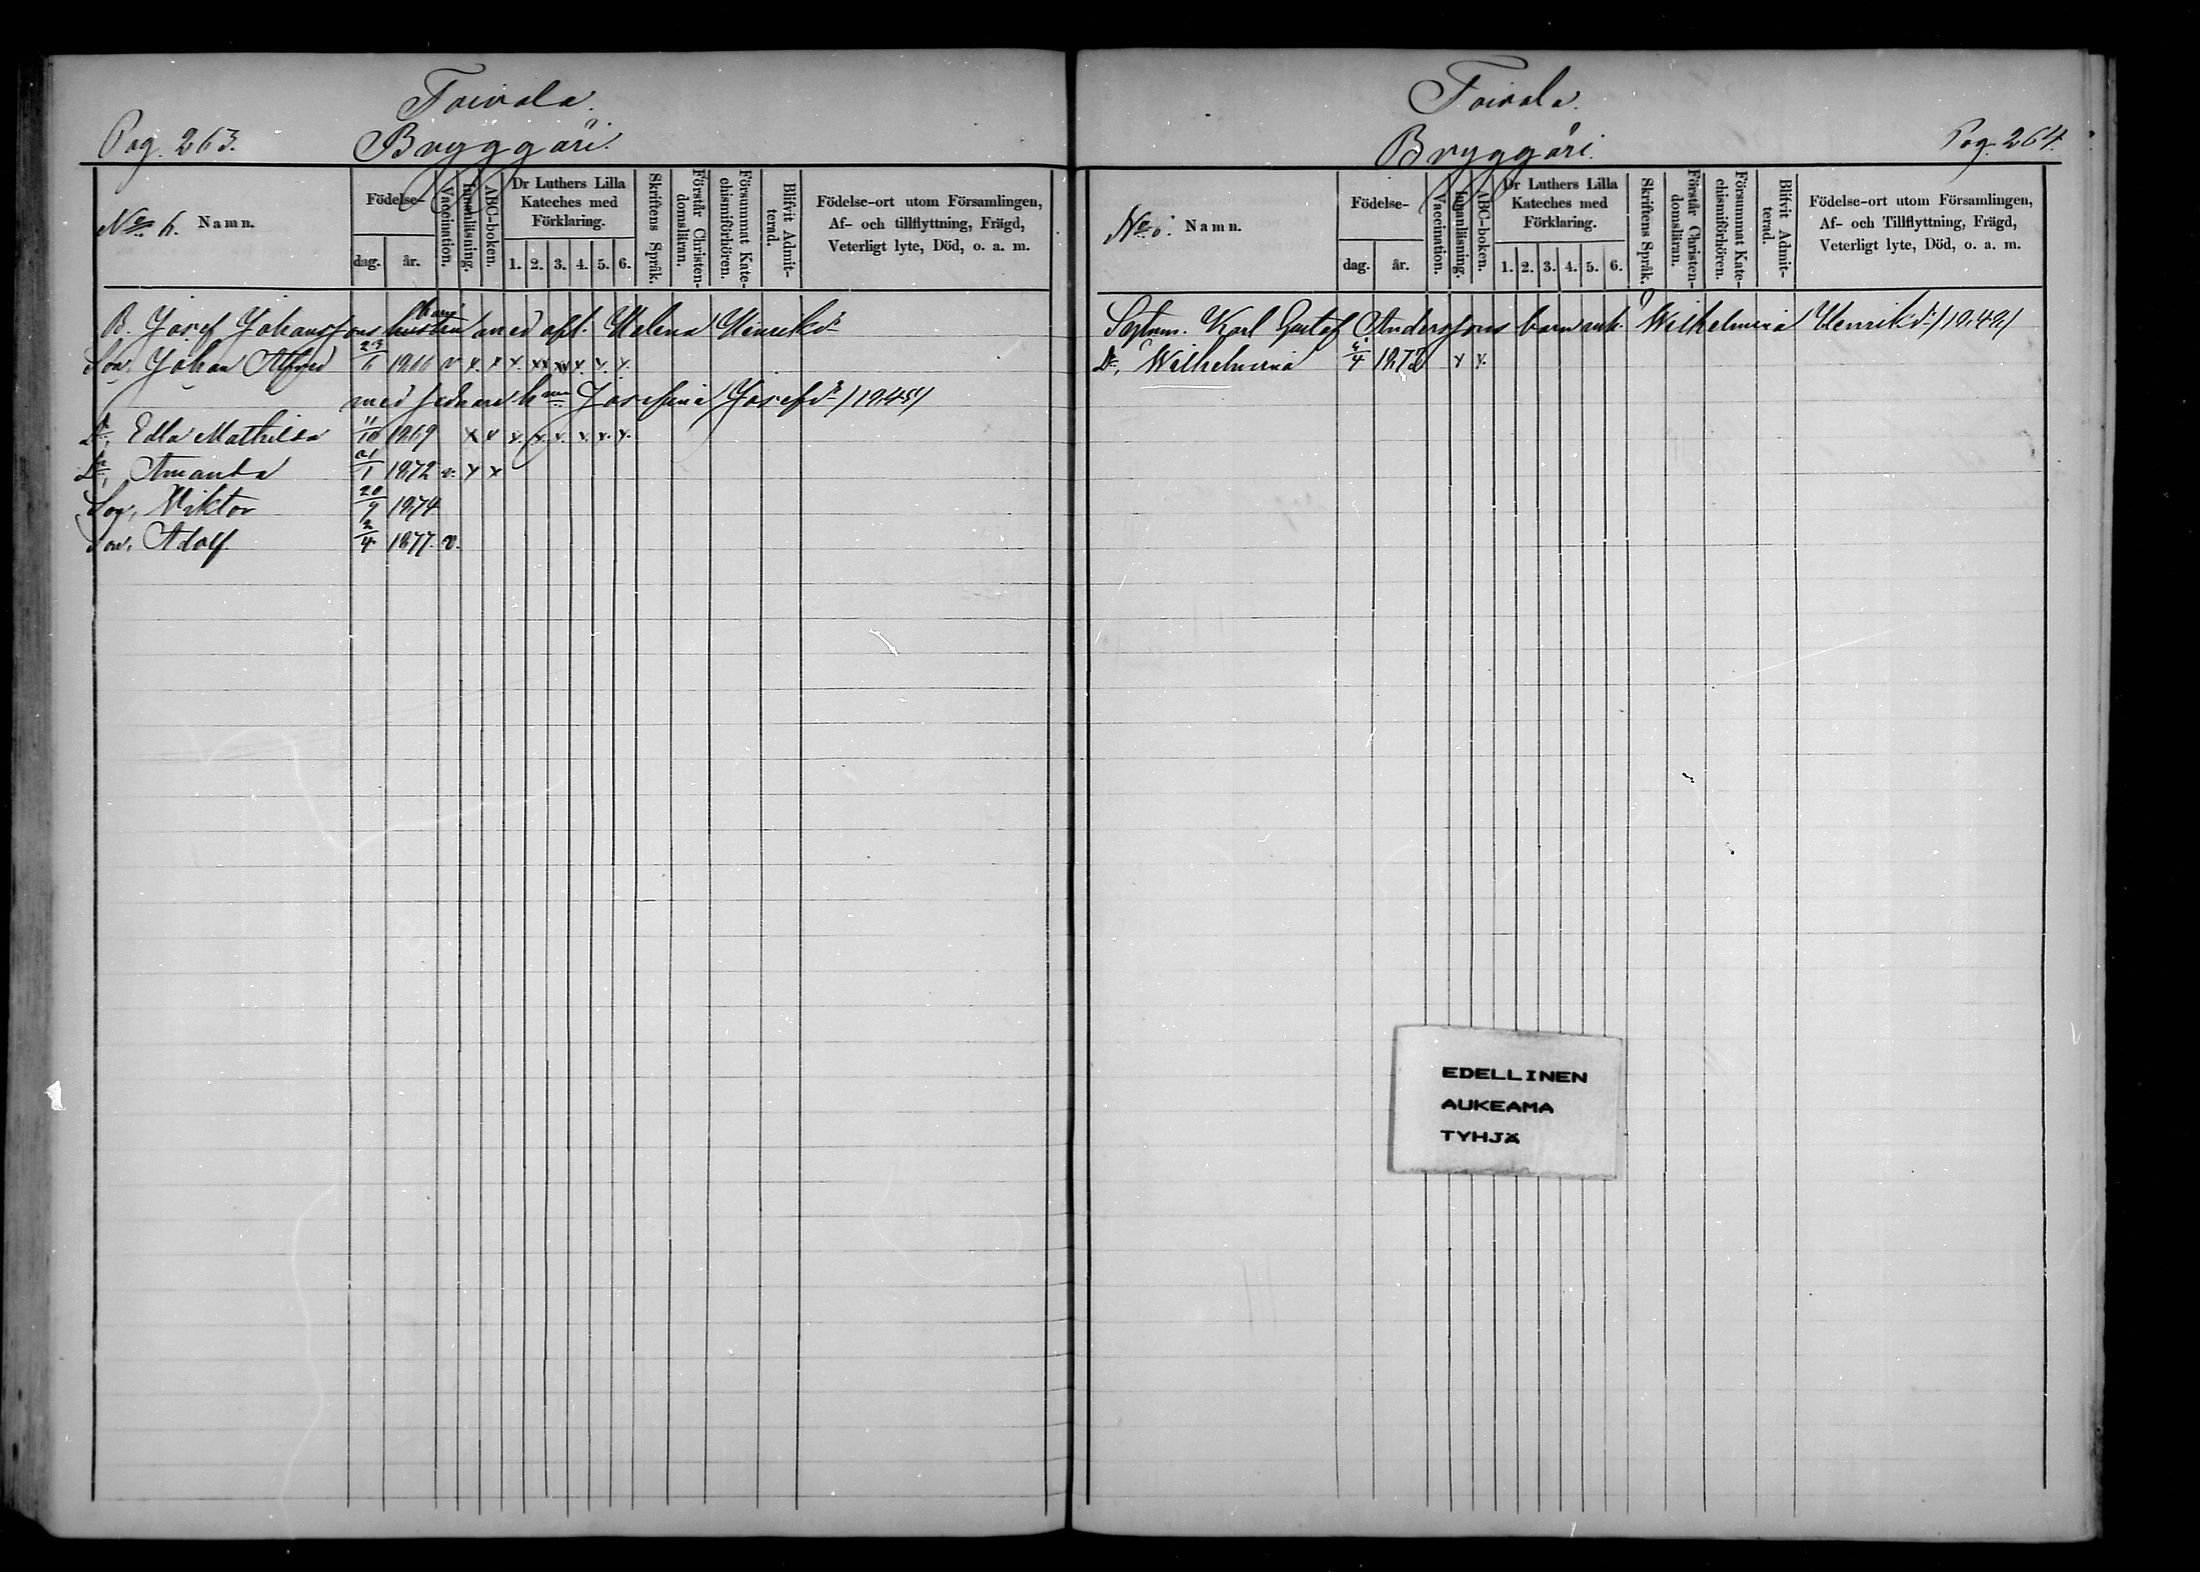 Toivola.
Pag. 263. Bryggäri.
No 6. Namn.
Födelse-
dag. år.
Vaccination.
Innanläsning.
ABC-boken.
Dr Luthers Lilla
Kateches med
Förklaring.
1. 2. 3. 4. 5. 6.
Skriftens Språk.
Förstår Christen-
domsläran.
Försummat Kate-
chismiförhören.
Blifvit Admit-
terad.
Födelse-ort utom Församlingen,
Af- och tillflyttning, Frägd,
Veterligt lyte, Död, o. a. m.
B. Josef Johanssons barn med afl. Helena Henriksdr
Son, Johan Alfred 23/6 1866 v x x x. xx xx x. x. x.
med sednare h Josefina Josefsdr /1845/
Dr, Edla Mathilda 11/10 1869 x x x. x. x. x. x. x.
Dr, Amanda 21/1 1872 v. x x
Son, Viktor 20/9 1874
Son, Adolf 2/4 1877. v.
Toivola.
Bryggäri. Pag. 264.
No 6. Namn.
Födelse-
dag. år.
Vaccination.
Innanläsning.
ABC-boken.
Dr Luthers Lilla
Kateches med
Förklaring.
1. 2. 3. 4. 5. 6.
Skriftens Språk.
Förstår Christen-
domsläran.
Försummat Kate-
chismiförhören.
Blifvit Admit-
terad.
Födelse-ort utom Församlingen,
Af- och Tillflyttning, Frägd,
Veterligt lyte, Död, o. a. m.
Karl Gustaf Anderssons barn Wilhelmina Henriksdr /1842/
Dr, Wilhelmina 1872 x x.
EDELLINEN
AUKEAMA
TYHJÄ